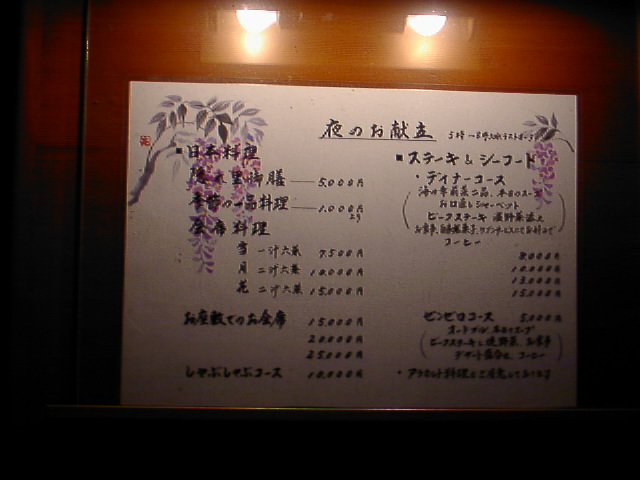 夜のお献立
■日本料理
御膳 5,000円
季節の一品料理 1,000円より
会席料理
雪 一汁六菜 7,500円
月 二汁六菜 10,000円
花 二汁八菜 15,000円
お座敷でのお会席 15,000円
20,000円
25,000円
しゃぶしゃぶコース 10,000円
■ステーキ&シーフード
・ディナーコース
海の幸前菜二品、本日のスープ
お口直しシャーベット
ビークステーキ 温野菜添え
コーヒー
8,000円
10,000円
13,000円
15,000円
ゼンゼロコース 5,000円
オードブル 本日のスープ
ビークステーキと焼野菜、お食事
デザート盛合せ、コーヒー
・アラカルト料理もご用意しております